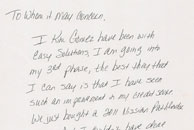 To Whom it May Concern,
I Kim Gomez have been with
Easy Solutions, I am going into
my 3rd phase, the best thing that
I can say is that I have seen
such an improvement in my credit score.
We just bought a 2011 Nissan Pathfinder